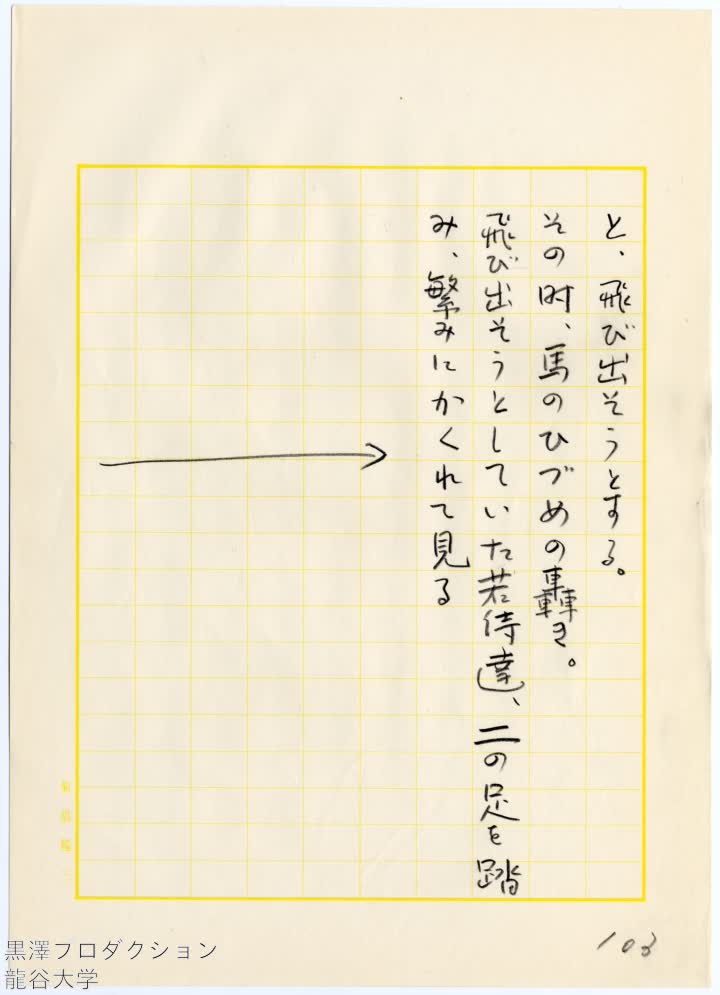 と、飛び出そうとする。
その時、馬のひづめの轟き。
飛び出そうとしていた若侍達、二の足を踏
み、繁みにかくれて見る
103
黒澤プロダクション
龍谷大学